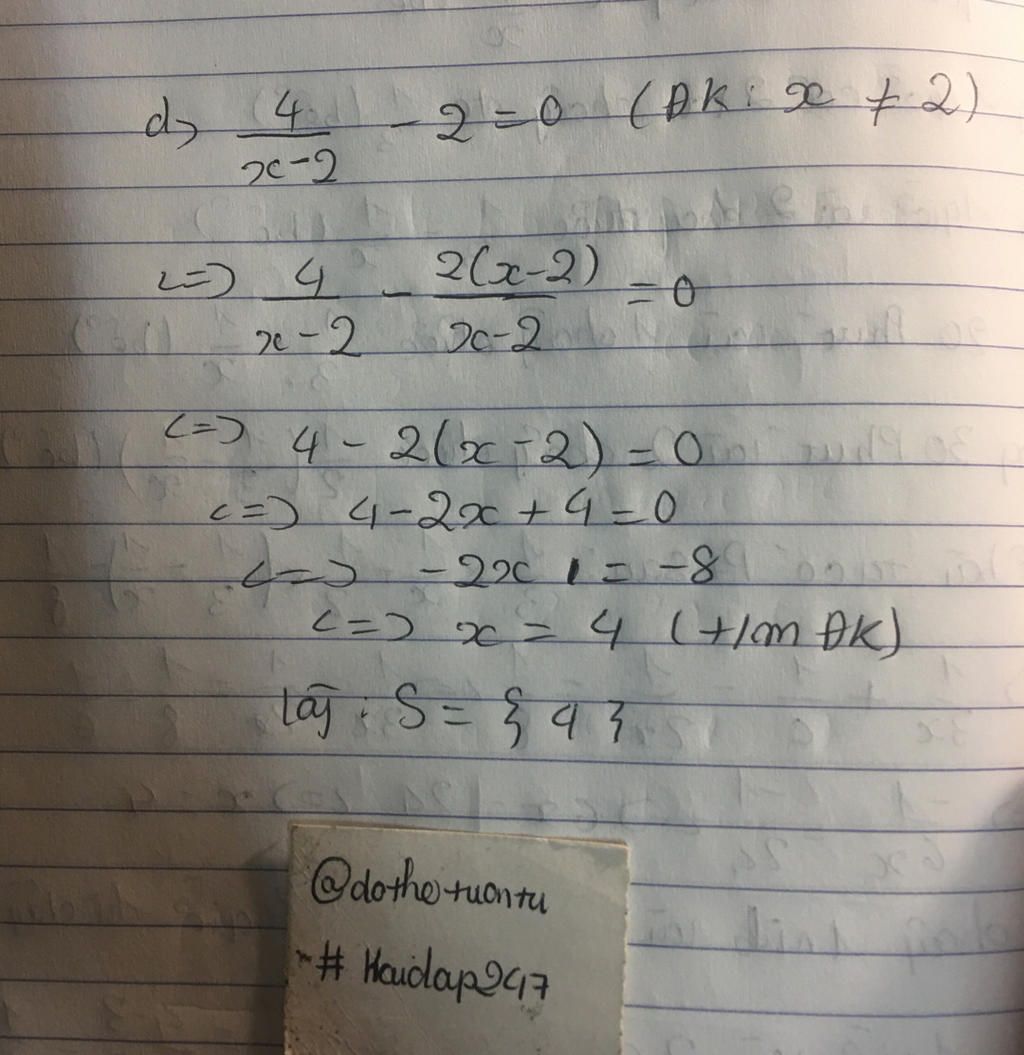 d> 4/(x-2) - 2 = 0 (ĐK: x ≠ 2)
<=> 4/(x-2) - 2(x-2)/(x-2) = 0
<=> 4 - 2(x-2) = 0
<=> 4 - 2x + 4 = 0
<=> -2x = -8
<=> x = 4 (t/m ĐK)
S = {4}
@dothetuantu
# Hoidap247